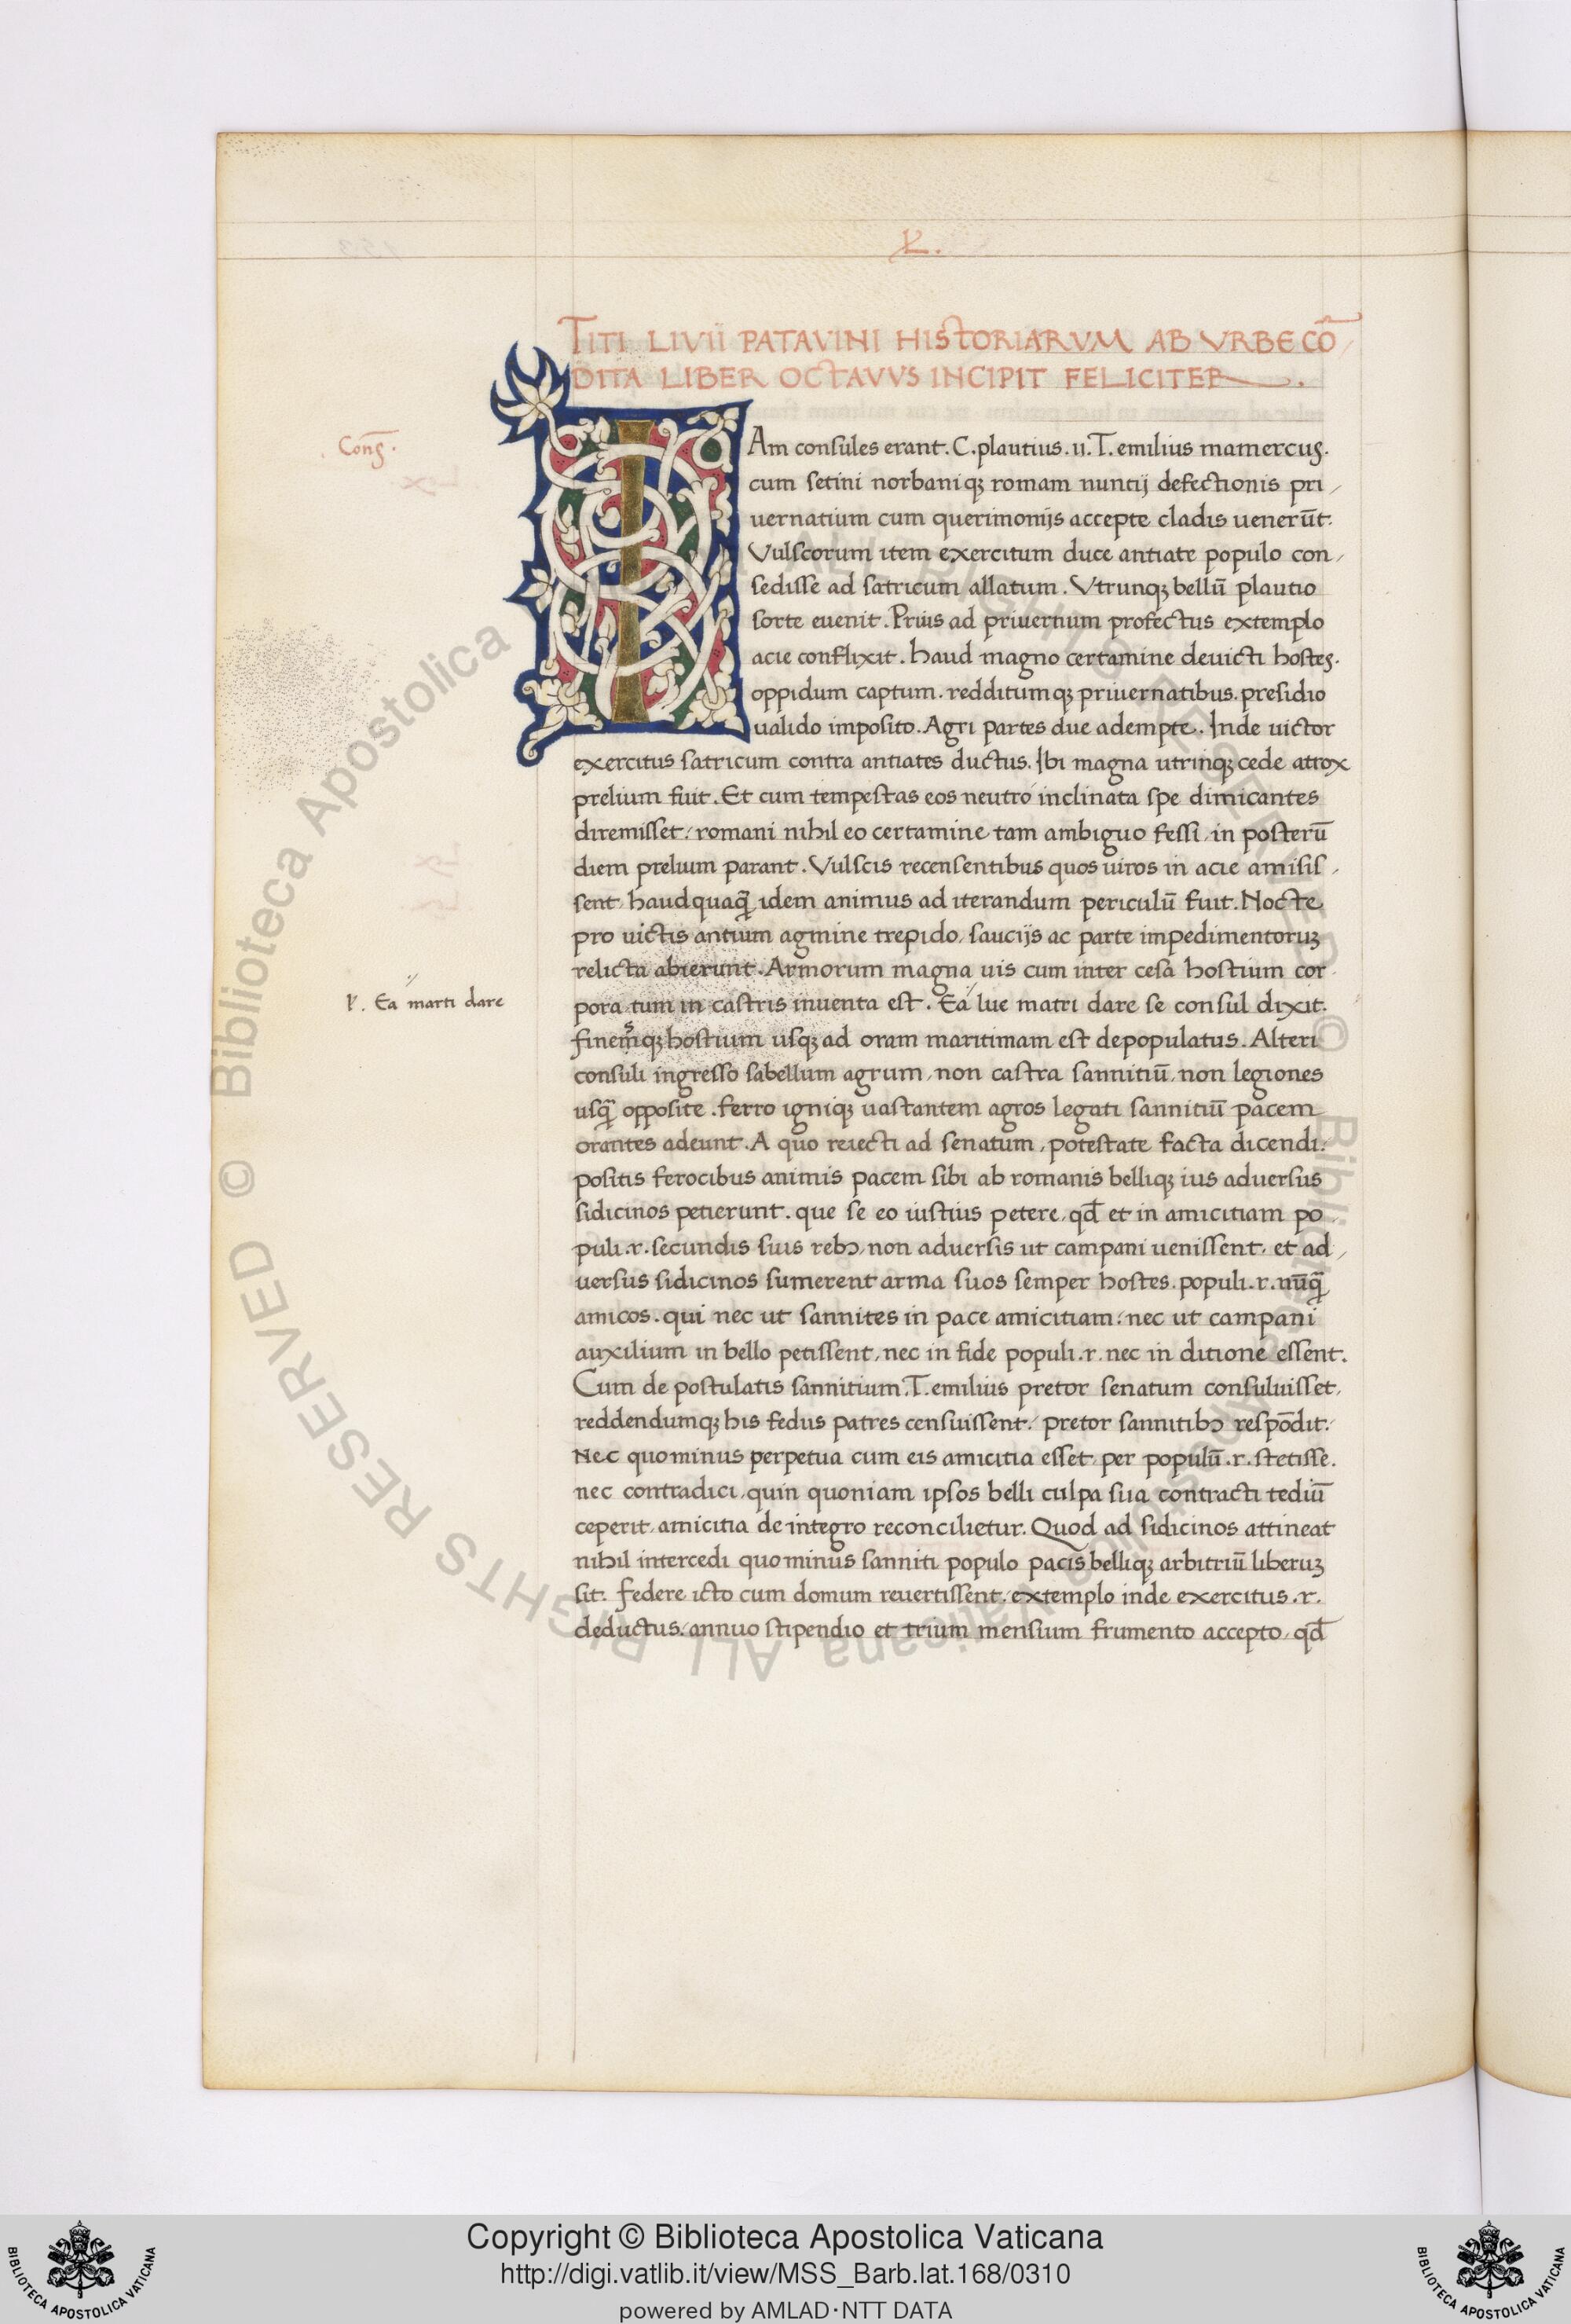 L.
TITI LIVII PATAVINI HISTORIARVM AB VRBE CŌ/
DITA LIBER OCTAVVS INCIPIT FELICITER.
Conſ.
IAm conſules erant. C. plautius. ıı. T. emilius mamercus.
cum setini norbaniqꝫ romam nuntij defectionis pri/
uernatium cum querimonijs accepte cladis uenerūt.
Vulscorum item exercitum duce antiate populo con/
sedisse ad satricum allatum. Vtrunqꝫ bellū plautio
sorte euenit. Prius ad priuernum profectus extemplo
acie conflixit. haud magno certamine deuicti hostes.
oppidum captum. redditumqꝫ priuernatibus. presidio
ualido imposito. Agri partes due adempte. Inde uictor
exercitus satricum contra antiates ductus. Ibi magna utrinqꝫ cede atrox
prelium fuit. Et cum tempestas eos neutro inclinata spe dimicantes
diremisset: romani nihil eo certamine tam ambiguo fessi, in posterū
diem prelium parant. Vulscis recensentibus quos uiros in acie amisis/
sent, haudquaq̄ idem animus ad iterandum periculū fuit. Nocte
pro uictis antium agmine trepido, saucijs ac parte impedimentoruꝫ
relicta abierunt. Armorum magna uis cum inter cesa hostium cor
pora tum in castris inuenta est. Ea lue matri dare se consul dixit.
V. Ea marti dare
finemsqꝫ hostium usqꝫ ad oram maritimam est depopulatus. Alteri
consuli ingresso sabellum agrum, non castra sannitiū, non legiones
usq̄ opposite. ferro igniqꝫ uastantem agros legati sannitiū pacem
orantes adeunt. A quo reiecti ad senatum, potestate facta dicendi:
positis ferocibus animis pacem sibi ab romanis belliqꝫ ius aduersus
sidicinos petierunt. que se eo iustius petere, qđ et in amicitiam po
puli .r. secundis suis rebꝯ, non aduersis ut campani uenissent, et ad/
uersus sidicinos sumerent arma suos semper hostes. populi .r. nūq̄
amicos. qui nec ut sannites in pace amicitiam: nec ut campani
auxilium in bello petissent, nec in fide populi .r. nec in ditione essent.
Cum de postulatis sannitium. T. emilius pretor senatum consuluisset,
reddendumqꝫ his fedus patres censuissent: pretor sannitibꝯ respōdit:
Nec quominus perpetua cum eis amicitia esset, per populū .r. stetisse.
nec contradici, quin quoniam ipsos belli culpa sua contracti tediū
ceperit, amicitia de integro reconcilietur. Quod ad sidicinos attineat
nihil intercedi quominus sanniti populo pacis belliqꝫ arbitriū liberuꝫ
sit. federe icto cum domum reuertissent, extemplo inde exercitus .r.
deductus: annuo stipendio et trium mensium frumento accepto, qđ
© Biblioteca Apostolica Vaticana ALL RIGHTS RESERVED
Copyright © Biblioteca Apostolica Vaticana
http://digi.vatlib.it/view/MSS_Barb.lat.168/0310
powered by AMLAD·NTT DATA
BIBLIOTECA APOSTOLICA VATICANA
BIBLIOTECA APOSTOLICA VATICANA